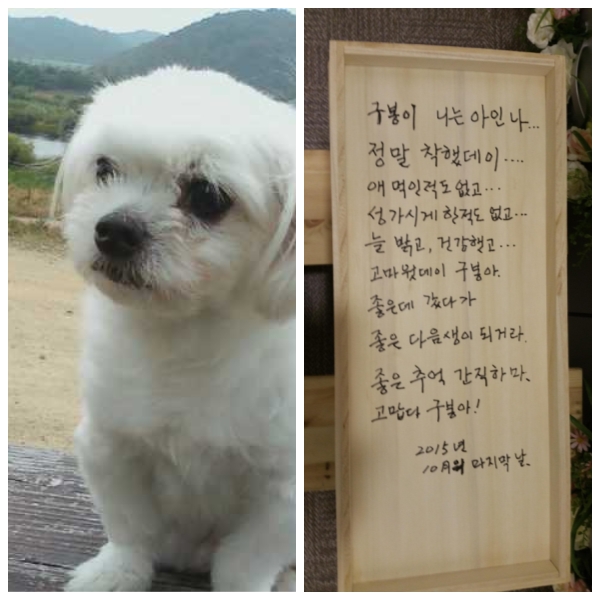 구봉이 니는 아인나...
정말 착했데이....
애 먹인적도 없고...
성가시게 한적도 없고...
늘 밝고, 건강했고...
고마웠데이 구봉아.
좋은데 갔다가
좋은 다음생이 되거라.
좋은 추억 간직하마.
고맙다 구봉아!
2015년
10月의 마지막 날.